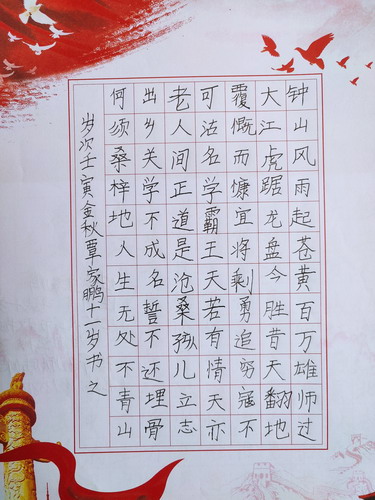 钟山风雨起苍黄百万雄师过
大江虎踞龙盘今胜昔天翻地
覆慨而慷宜将剩勇追穷寇不
可沽名学霸王天若有情天亦
老人间正道是沧桑孩儿立志
出乡关学不成名誓不还埋骨
何须桑梓地人生无处不青山
岁次壬寅金秋覃家鹏十岁书之